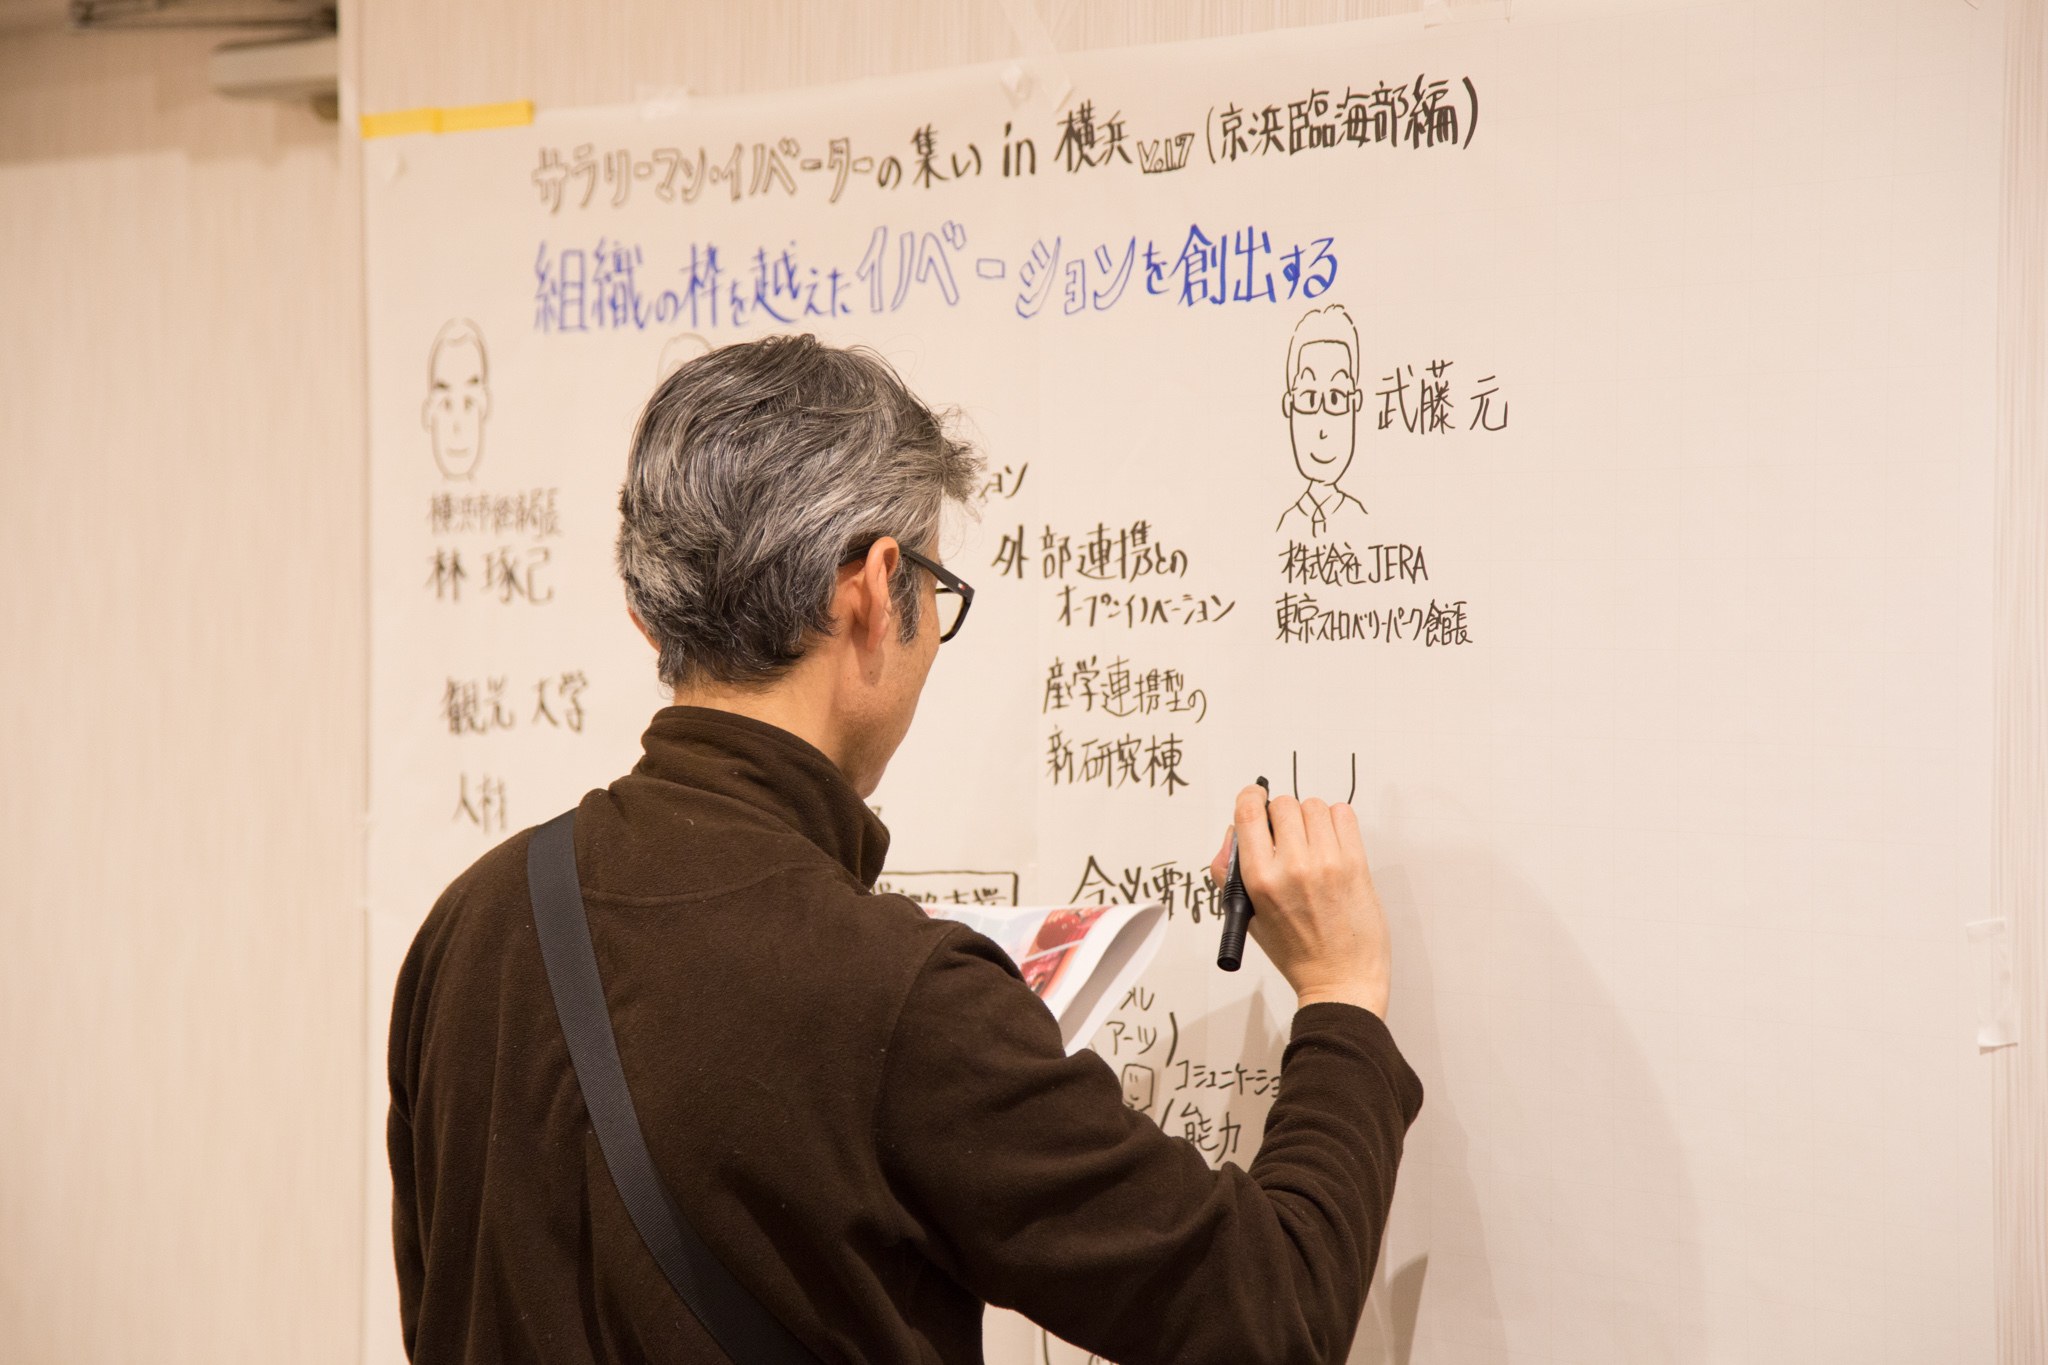 サラリーマン・イノベーターの集い in 横浜 Vol.7 (京浜臨海部編)
組織の枠を越えたイノベーションを創出する
林 琢己
観光 大学
人材
ョン
外部連携との
オープンイノベーション
産学連携型の
新研究棟
今必要な
アーツ)
コミュニケーショ
能力
武藤 元
株式会社JERA
東京ストロベリーパーク館長